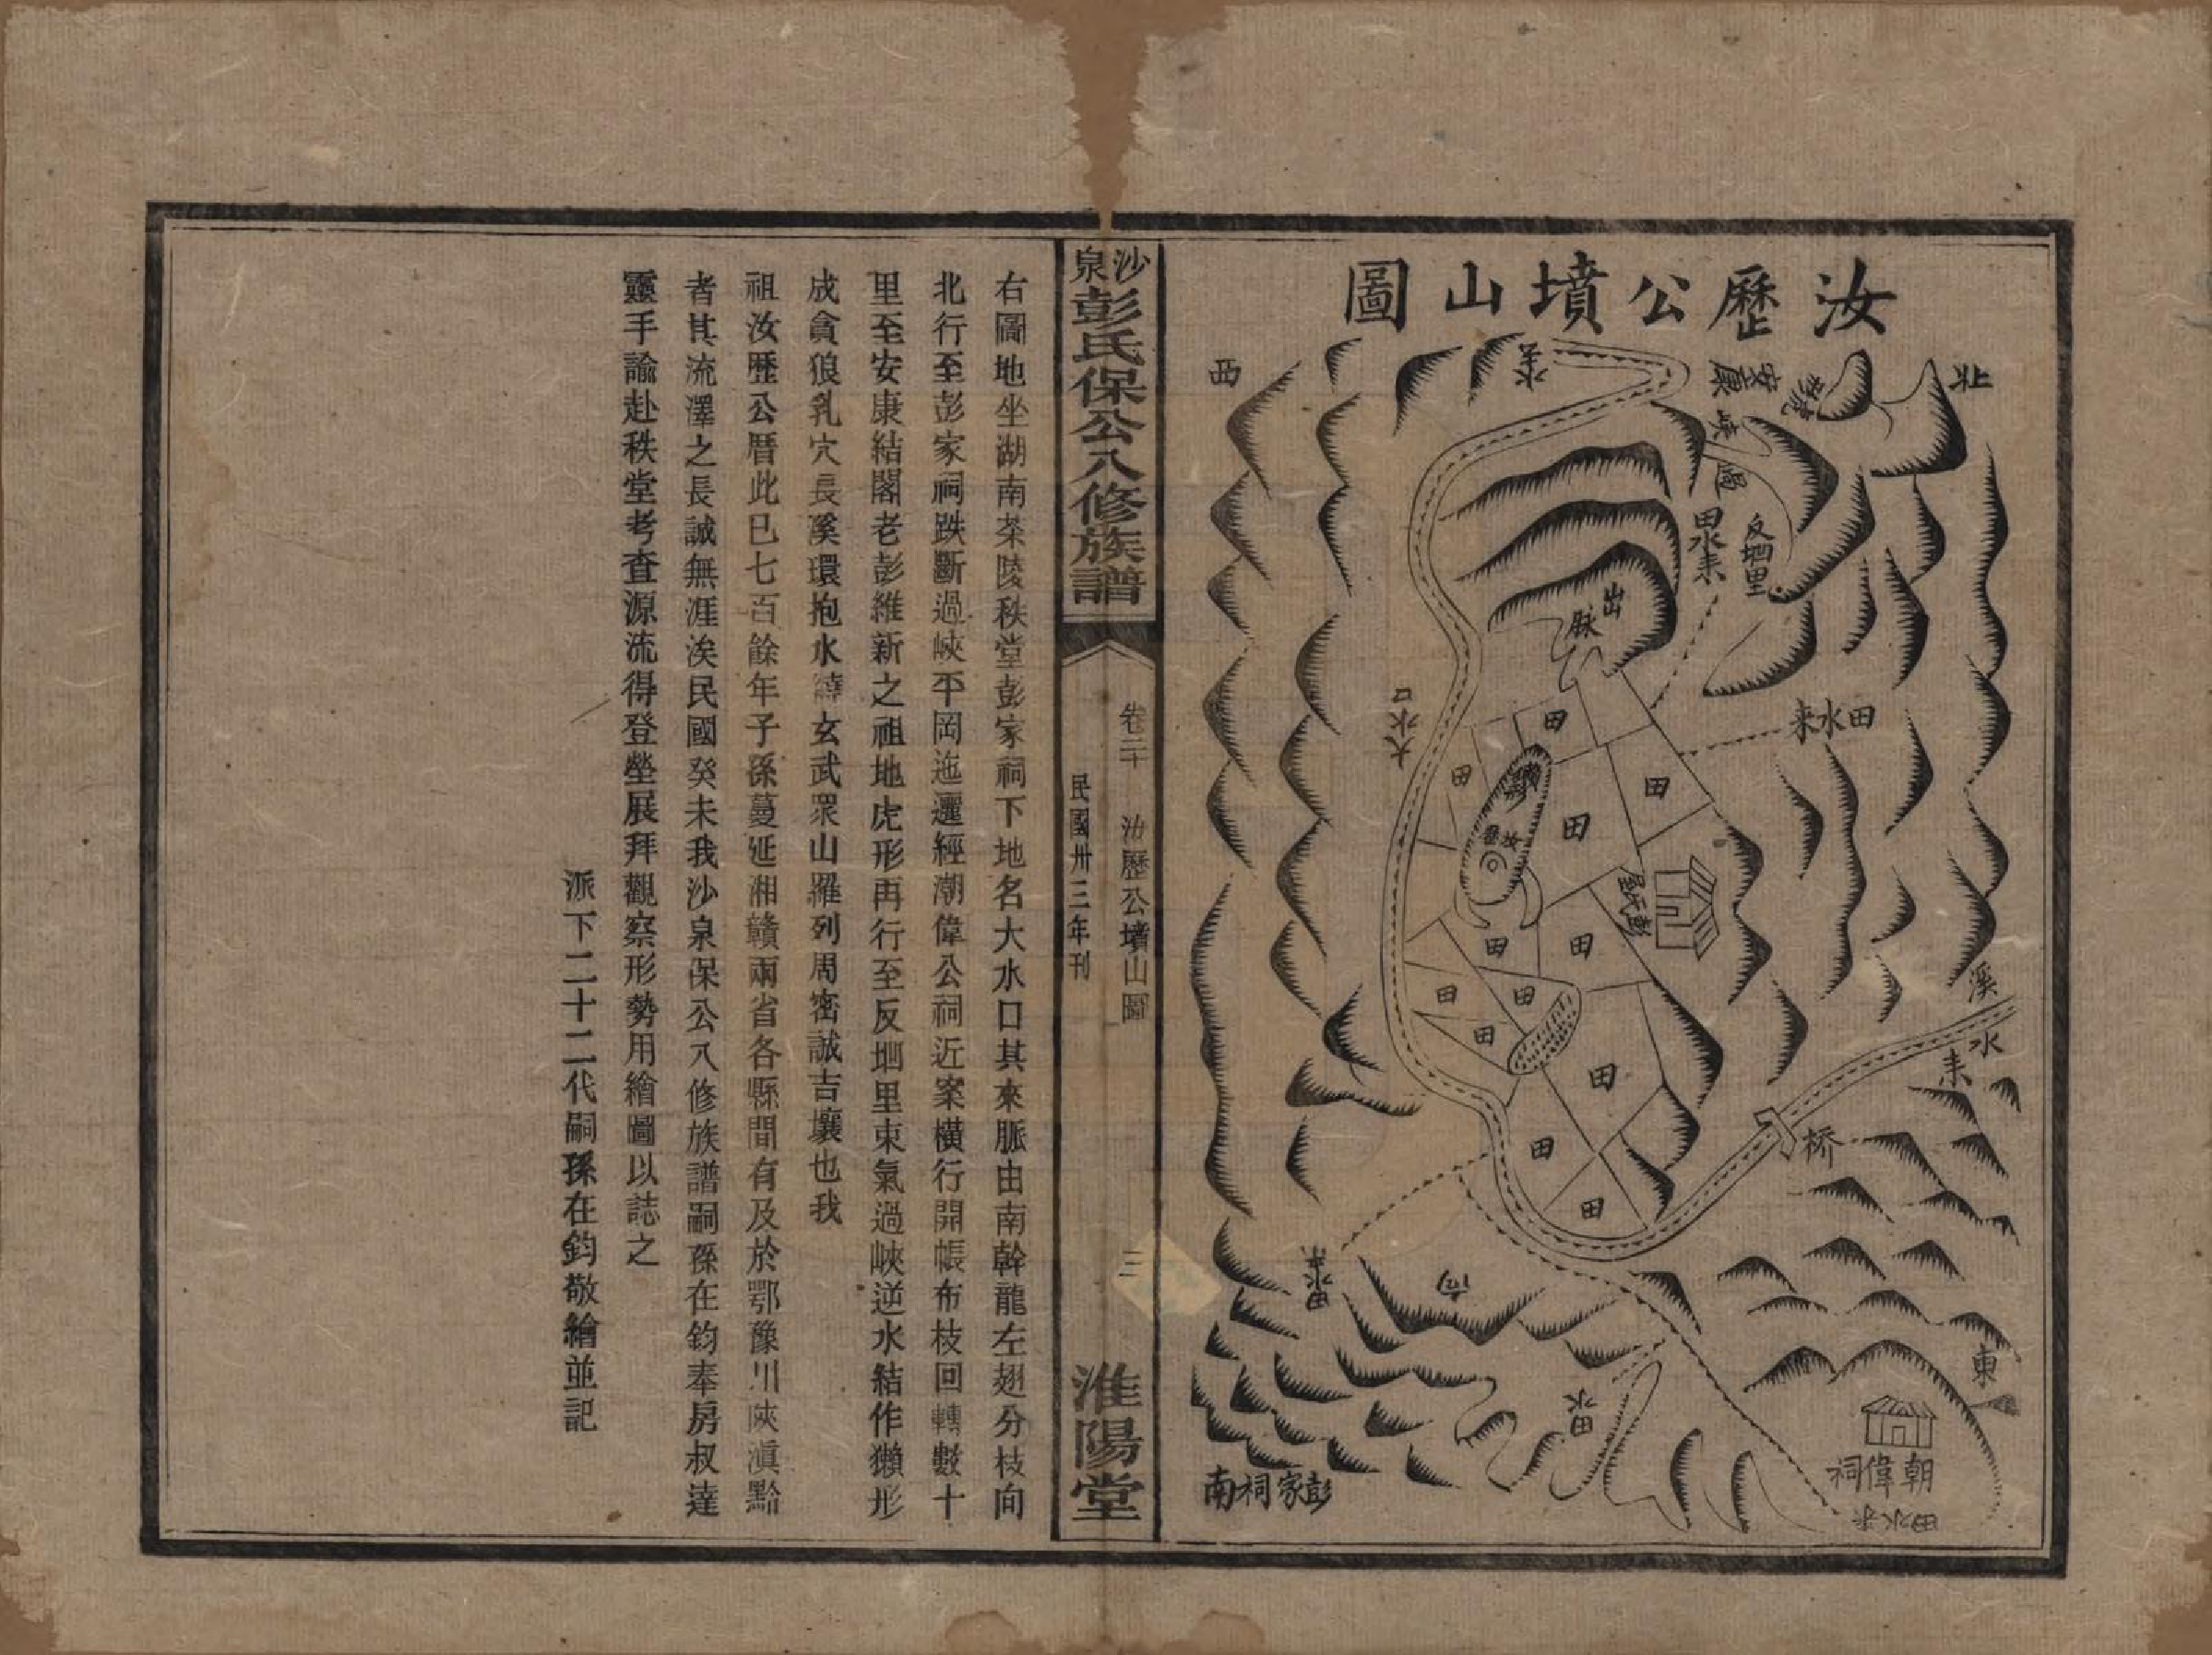 汝歷公墳山圖
北
西
安康
峽
過
反堋里
田水来
出
脉
田水来
大水口
田
田
田
田
彭氏屋
田
田
田
田
田
田
田
田
溪
水
来
桥
向
田水
東
朝偉祠
田水来
彭家祠
南
沙泉彭氏保公八修族譜
卷二十 汝歷公墳山圖
三
民國卅三年刊
淮陽堂
右圖地坐湖南茶陵秩堂彭家祠下地名大水口其來脈由南幹龍左翅分枝向
北行至彭家祠跌斷過峽平岡迤邐經潮偉公祠近案橫行開帳布枝回轉數十
里至安康結閣老彭維新之祖地虎形再行至反堋里束氣過峽逆水結作獺形
成貪狼乳穴長溪環抱水繞玄武眾山羅列周密誠吉壤也我
祖汝歷公曆此已七百餘年子孫蔓延湘贛兩省各縣間有及於鄂豫川陝滇黔
者其流澤之長誠無涯涘民國癸未我沙泉保公八修族譜嗣孫在鈞奉房叔達
靈手諭赴秩堂考查源流得登塋展拜觀察形勢用繪圖以誌之
派下二十二代嗣孫在鈞敬繪並記